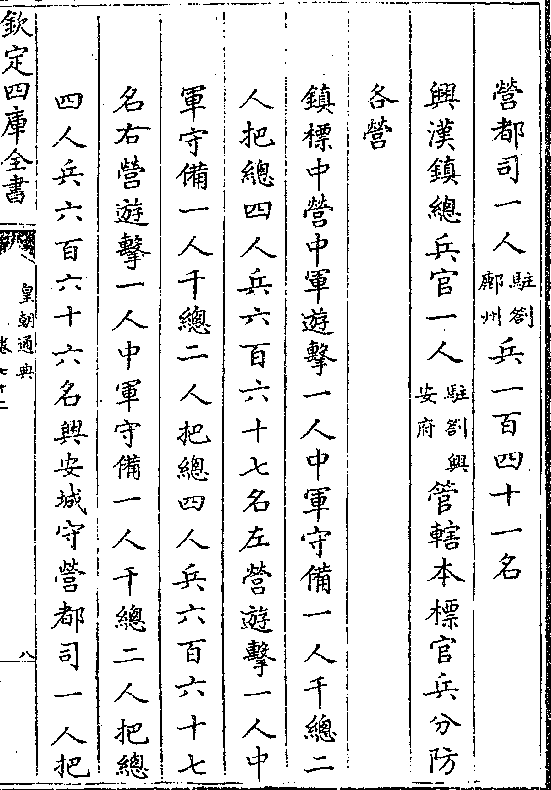 營都司一人駐劄鄜州兵一百四十一名
興漢鎮總兵官一人駐劄興安府管轄本標官兵分防
各營
鎮標中營中軍遊擊一人中軍守備一人千總二
人把總四人兵六百六十七名左營遊擊一人中
軍守備一人千總二人把總四人兵六百六十七
名右營遊擊一人中軍守備一人千總二人把總
四人兵六百六十六名興安城守營都司一人把
欽定四庫全書
皇朝通典
八